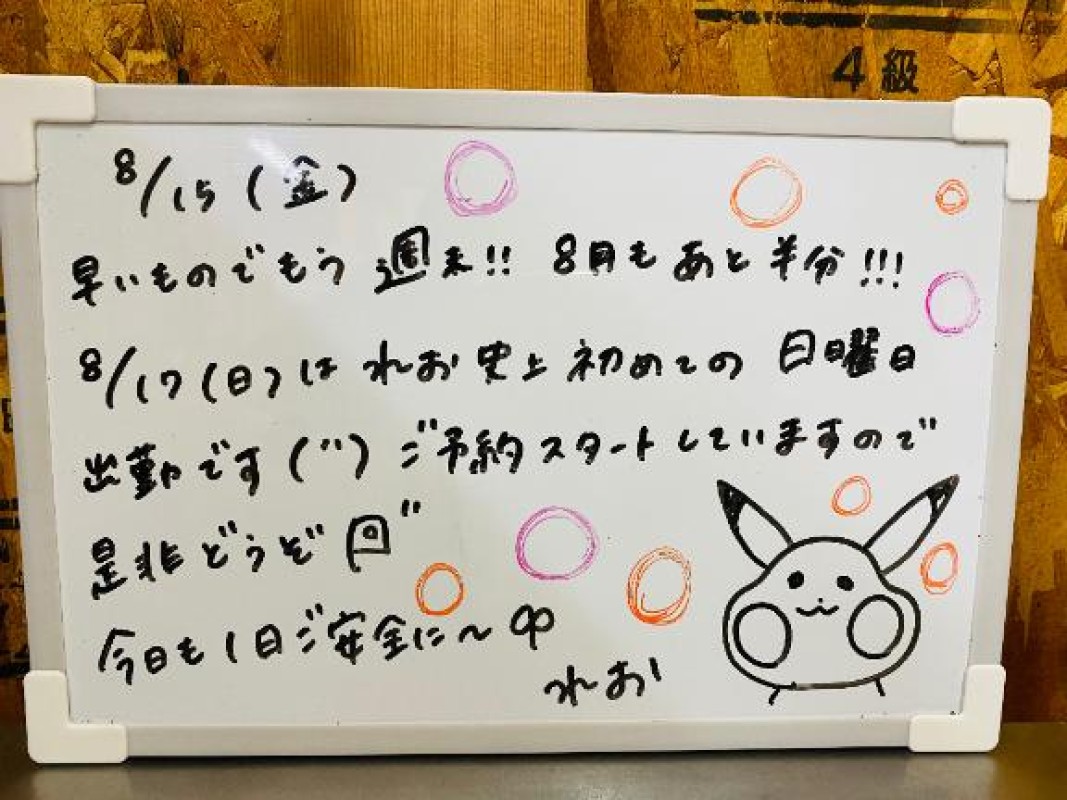 4級
8/15(金)
早いものでもう週末!! 8月もあと半分!!!
8/17(日)は れお史上 初めての 日曜日
出勤です(¨) ご予約スタートしていますので
是非どうぞ
今日も1日ご安全に〜
れお